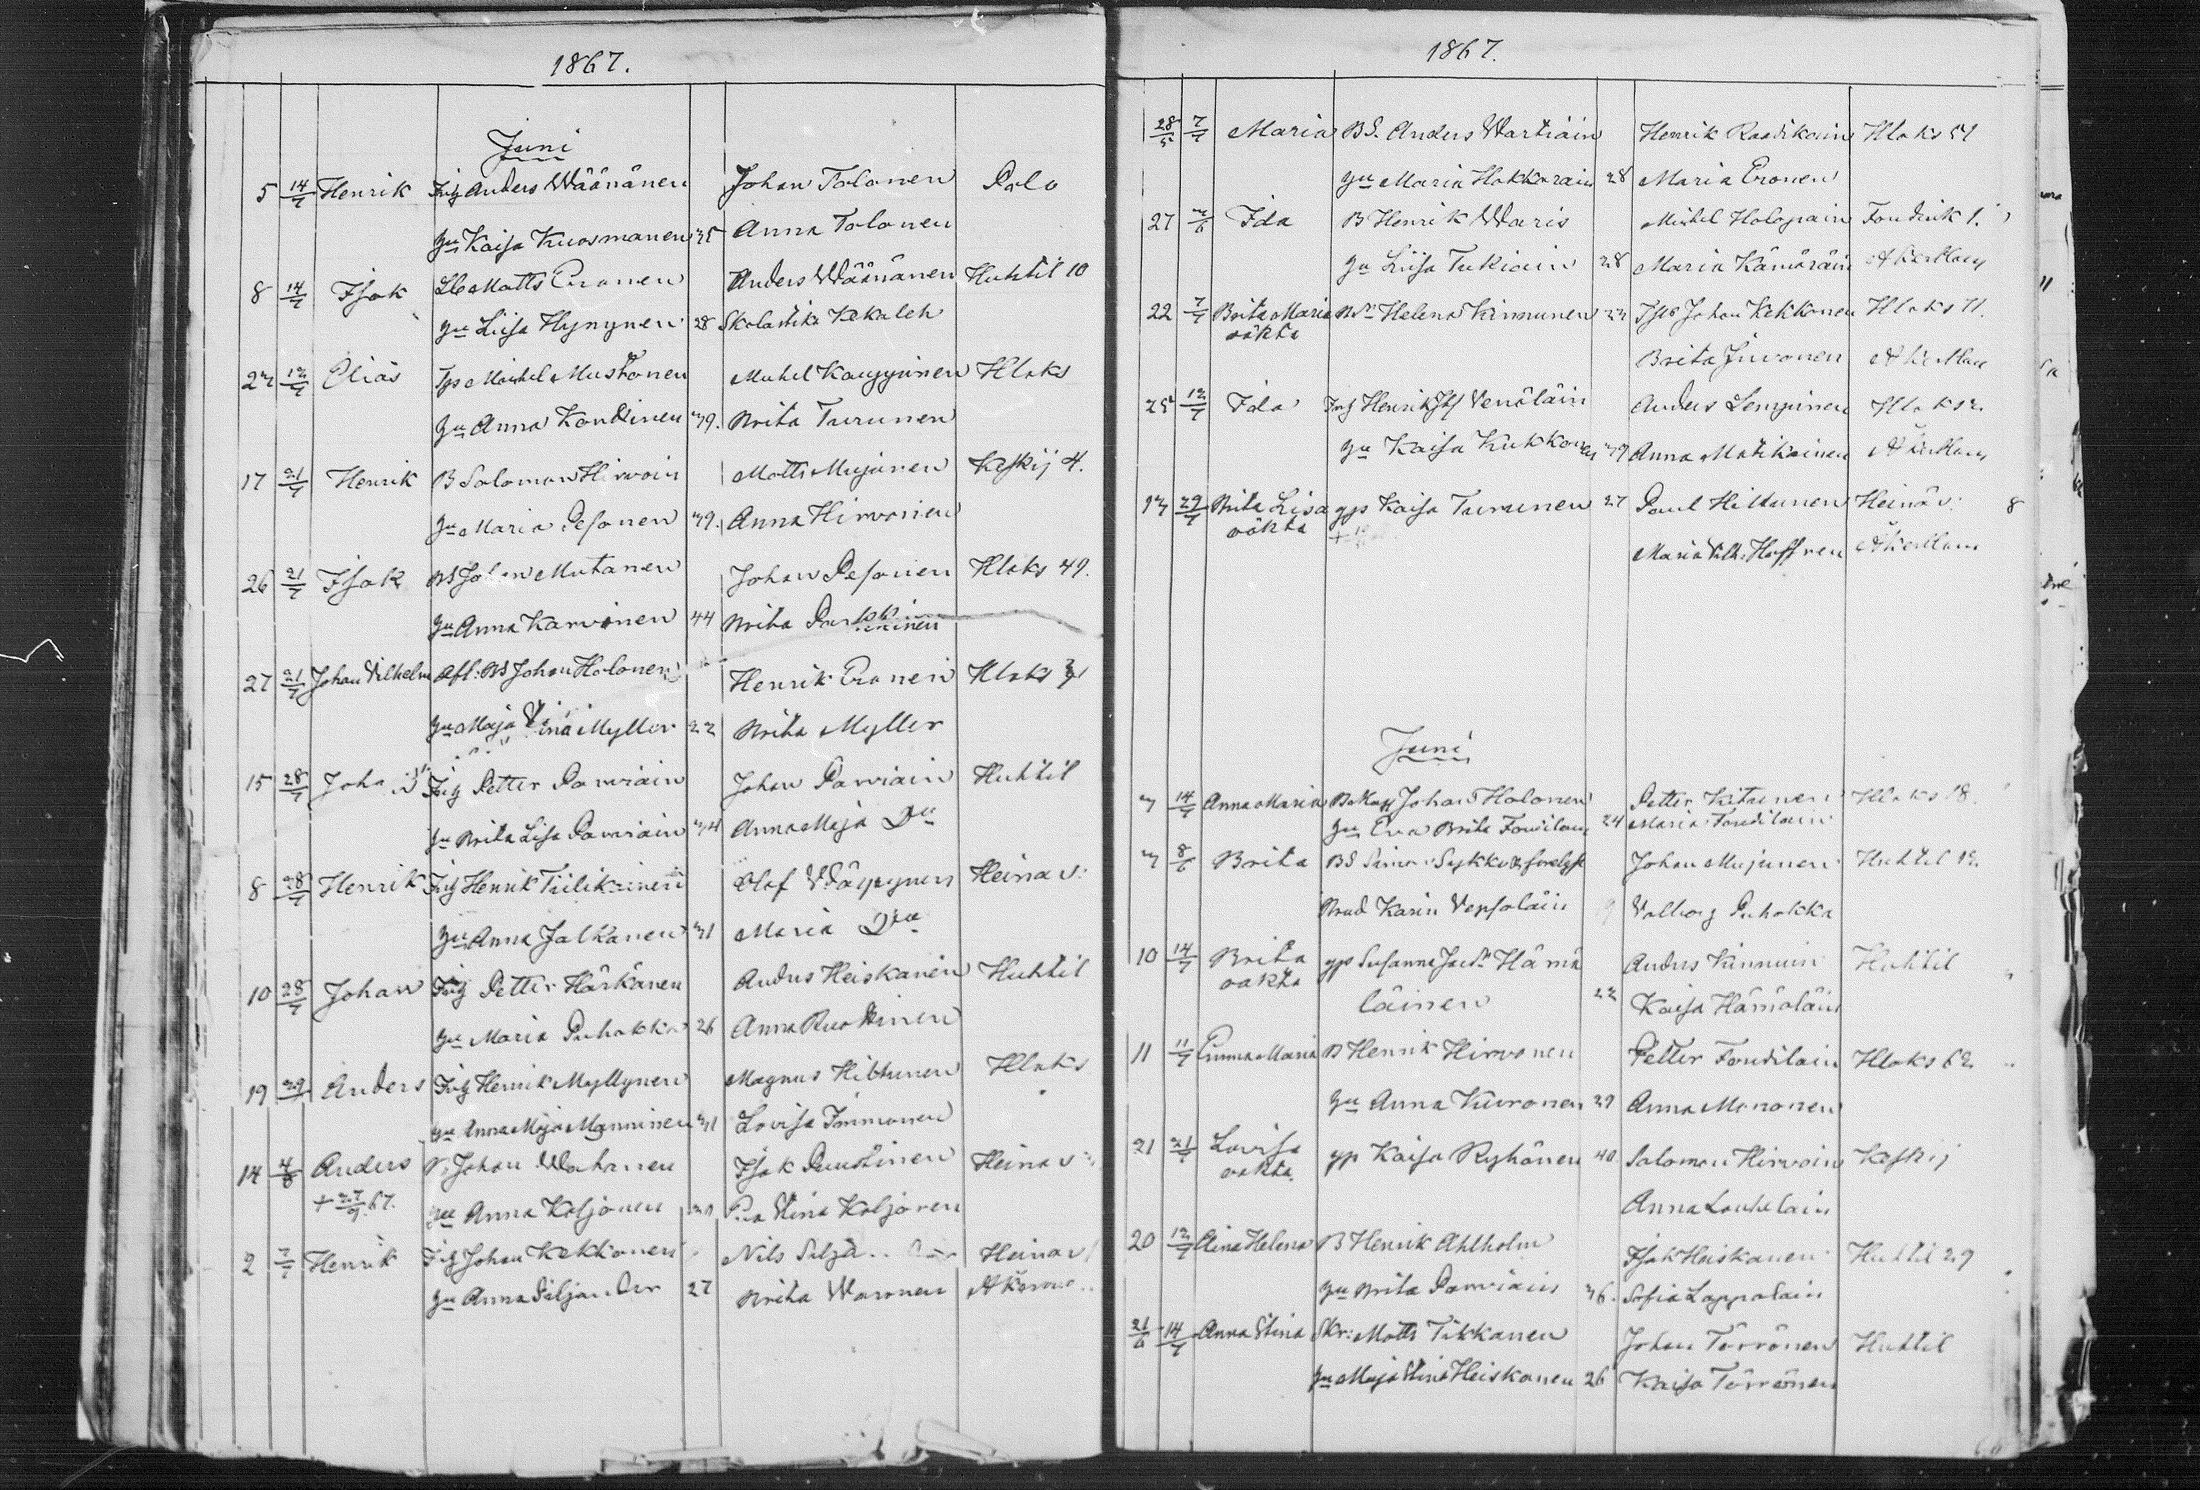 1867.
Juni
5 14/7 Henrik Inh Anders Wäänänen Johan Tolonen Polo
hu Kaisa Kuosmanen 35 Anna Tolonen
8 14/7 Isak Lbo Matts Eronen Anders Wäänänen Huhtil 10
hu Liisa Hynynen 28 Skolastika Kekaleh
23 12/7 Elias Tps Michel Mustonen Michel Kauppinen Hloks
hu Anna Kondinen 39. Brita Turunen
17 21/7 Henrik B Salomon Hirvoin Matts Mujunen Keskij 4.
hu Maria Pesonen 39. Anna Hirvonen
26 21/7 Isak BS Johan Mutanen Johan Pesonen Hloks 49.
hu Anna Karvonen 44 Brita
27 21/7 Johan Vilhelm Afl: BS Johan Holonen Henrik Eronen Hloks
hu Maja Stina Myller 22 Brita Myller
15 28/7 Johan Inh Petter Parviain Johan Parviain Huhtil
hu Brita Lisa Parviain 34 Anna Maja Do
8 28/7 Henrik Inh Henrik Tiilikainen Olof Wäyrynen Heinäv:
hu Anna Jalkanen 31 Maria Do
10 28/7 Johan Inh Petter Härkänen Anders Heiskanen Huhtil
hu Maria Puhakka 26 Anna Ruottinen
19 29/7 Anders Inh Henrik Myllynen Magnus Hiltunen Hloks
hu Anna Maja Manninen 31 Lovisa Immonen
14 4/8 Anders B Johan Wahanen Isak Puustinen Heinäv
+ 27/9 67. hu Anna Koljonen Eva Stina Koljonen
2 7/7 Henrik Inh Johan Kekkonen Nils Heinäv
hu Anna Siljander 27 Brita Woronen
1867.
28/5 7/7 Maria BS. Anders Wartiain Henrik Raadikain Hloks 51
hu Maria Hokkarain 28 Maria Eronen
27 Ida B Henrik Waris Michel Holopain Fondruk 1.
hu Liisa Tukiain 28 Maria Kämäräin
22 7/7 Brita Maria BDr Helena Kinnunen 23 Johan Kekkonen Hloks 11.
oäkta Brita Juvonen
25 12/7 Ida Inh Henrik Venäläin Anders Lempinen Hloks 2.
hu Kaisa Kukkonen 39 Anna Matikainen
13 29/7 Brita Lisa gp Kaisa Turunen 27 Paul Hiltunen Heinäv: 8
oäkta Maria Vilh: Hoffren
Juni
3 14/7 Anna Maria Johan Holonen Petter Kitunen Hloks 18
hu Eva Brita Foudilain 24 Maria Foudilain
3 8/6 Brita BS Simon Sykkö Johan Mujunen Huhtil 12.
Brud Karin Vepsäläin Valborg Puhakka
10 14/7 Brita gp Susanna Jacdr Hämä Anders Kinnuin Huhtil
oäkta läinen 22 Kaisa Hämäläin
11 11/7 Emma Maria B Henrik Hirvonen Petter Foudilain Hloks 62
hu Anna Kuronen 29 Anna Mononen
21 21/7 Lovisa gp Kaisa Ryhänen 40 Salomon Hirvoin Keskij
oäkta. Anna Louhelain
20 12/7 Aina Helena B Henrik Ahlholm Isak Heiskanen Huhtil 29
hu Brita Parviain 36. Sofia Lappalain
21/6 14/7 Anna Stina Skr: Matts Tikkanen Johan Törrönen Huhtil
hu Maja Stina Heiskanen 26 Kaisa Törrönen